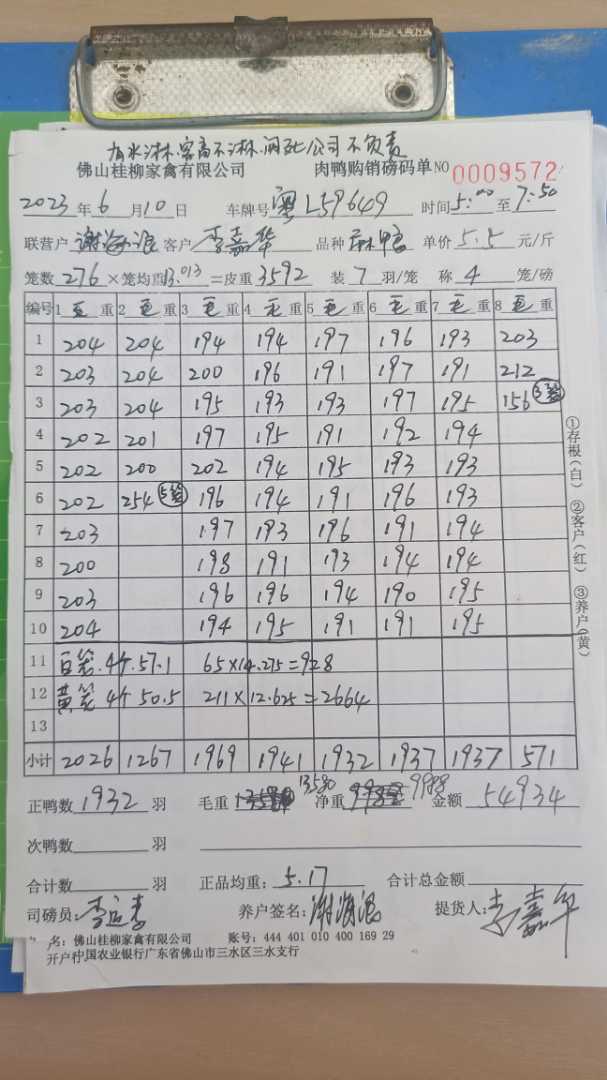 有水淋.客商不淋.闷死公司不负责
佛山桂柳家禽有限公司 肉鸭购销磅码单NO 0009572
2023年6月10日 车牌号 粤L59649 时间5:00至7:50
联营户 谢海浪 客户 李嘉华 品种 麻鸭 单价 5.5 元/斤
笼数 276 ×笼均重 13.013 =皮重 3592 装 7 羽/笼 称 4 笼/磅
编号 1 毛 重 2 毛 重 3 毛 重 4 毛 重 5 毛 重 6 毛 重 7 毛 重 8 毛 重
1 204 204 194 194 197 196 193 203
2 203 204 200 196 191 197 191 212
3 203 204 195 193 193 197 195 156 3笼
4 202 201 197 195 191 192 194
5 202 200 202 194 195 193 193
6 202 254 5笼 196 194 191 196 193
7 203 197 193 196 191 194
8 200 198 191 193 194 194
9 203 196 196 194 190 195
10 204 194 195 191 191 195
11 白笼.4个.57.1 65×14.275=928
12 黄笼 4个 50.5 211×12.625=2664
13
小计 2026 1267 1969 1941 1932 1937 1937 571
正鸭数 1932 羽 毛重 13580 净重 9988 金额 54934
次鸭数 羽
合计数 羽 正品均重: 5.17 合计总金额
司磅员: 养户签名: 谢海浪 提货人: 李嘉华
名: 佛山桂柳家禽有限公司 账号: 444 401 010 400 169 29
开户 中国农业银行广东省佛山市三水区三水支行
①存根(白) ②客户(红) ③养户(黄)